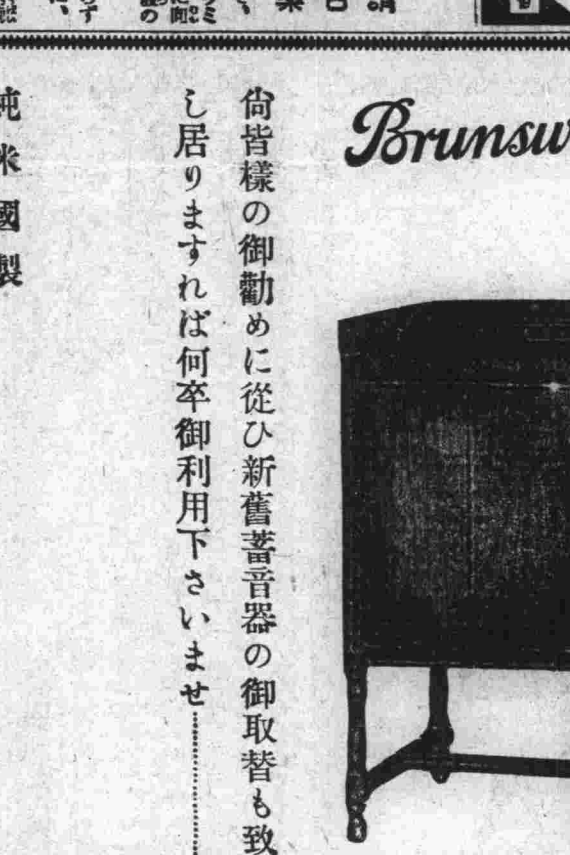 Brunsw
尙皆樣の御勸めに從ひ新舊蓄音器の御取替も致
し居りますれば何卒御利用下さいませ………
純米國製